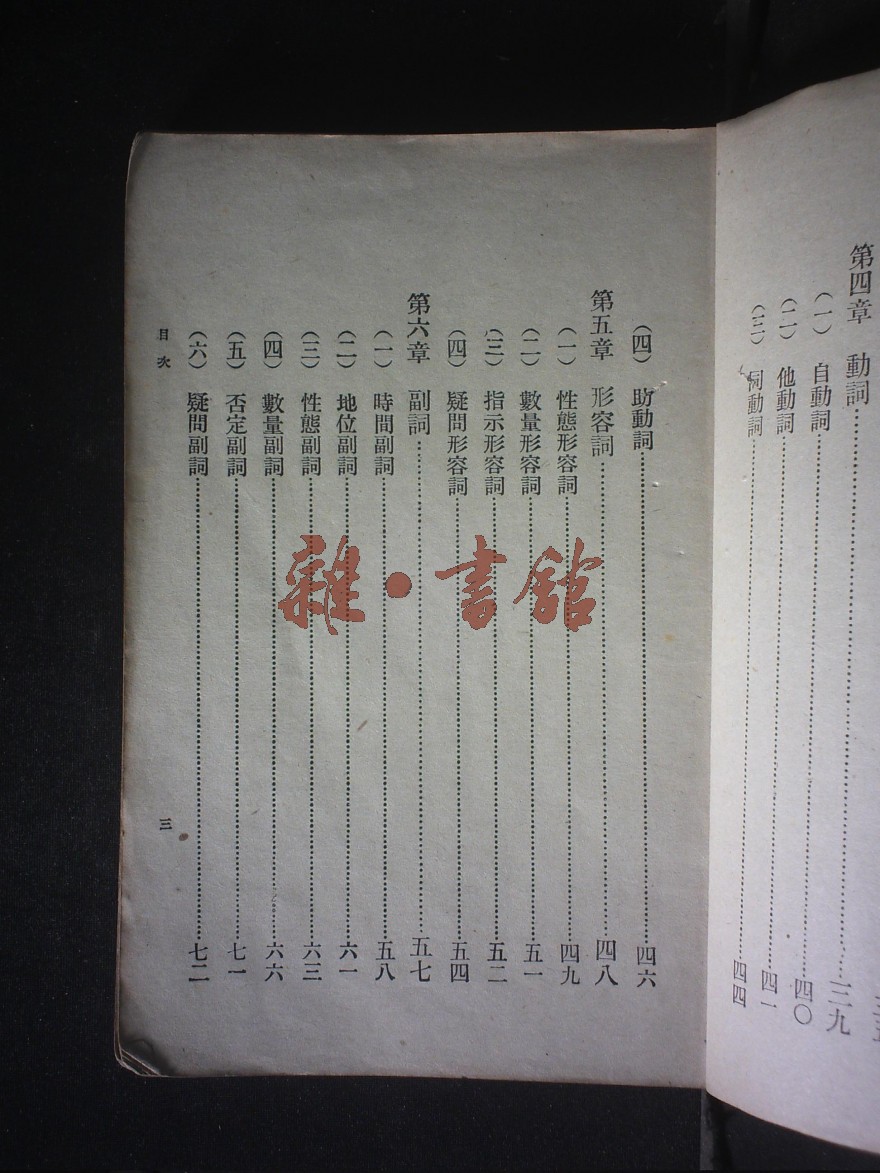 第四章 動詞………三九
(一) 自動詞………四〇
(二) 他動詞………四一
(三) 同動詞………四四
(四) 助動詞………四六
第五章 形容詞………四八
(一) 性態形容詞………四九
(二) 數量形容詞………五一
(三) 指示形容詞………五二
(四) 疑問形容詞………五四
第六章 副詞………五七
(一) 時間副詞………五八
(二) 地位副詞………六一
(三) 性態副詞………六三
(四) 數量副詞………六六
(五) 否定副詞………七一
(六) 疑問副詞………七二
目次
三
雜·書館